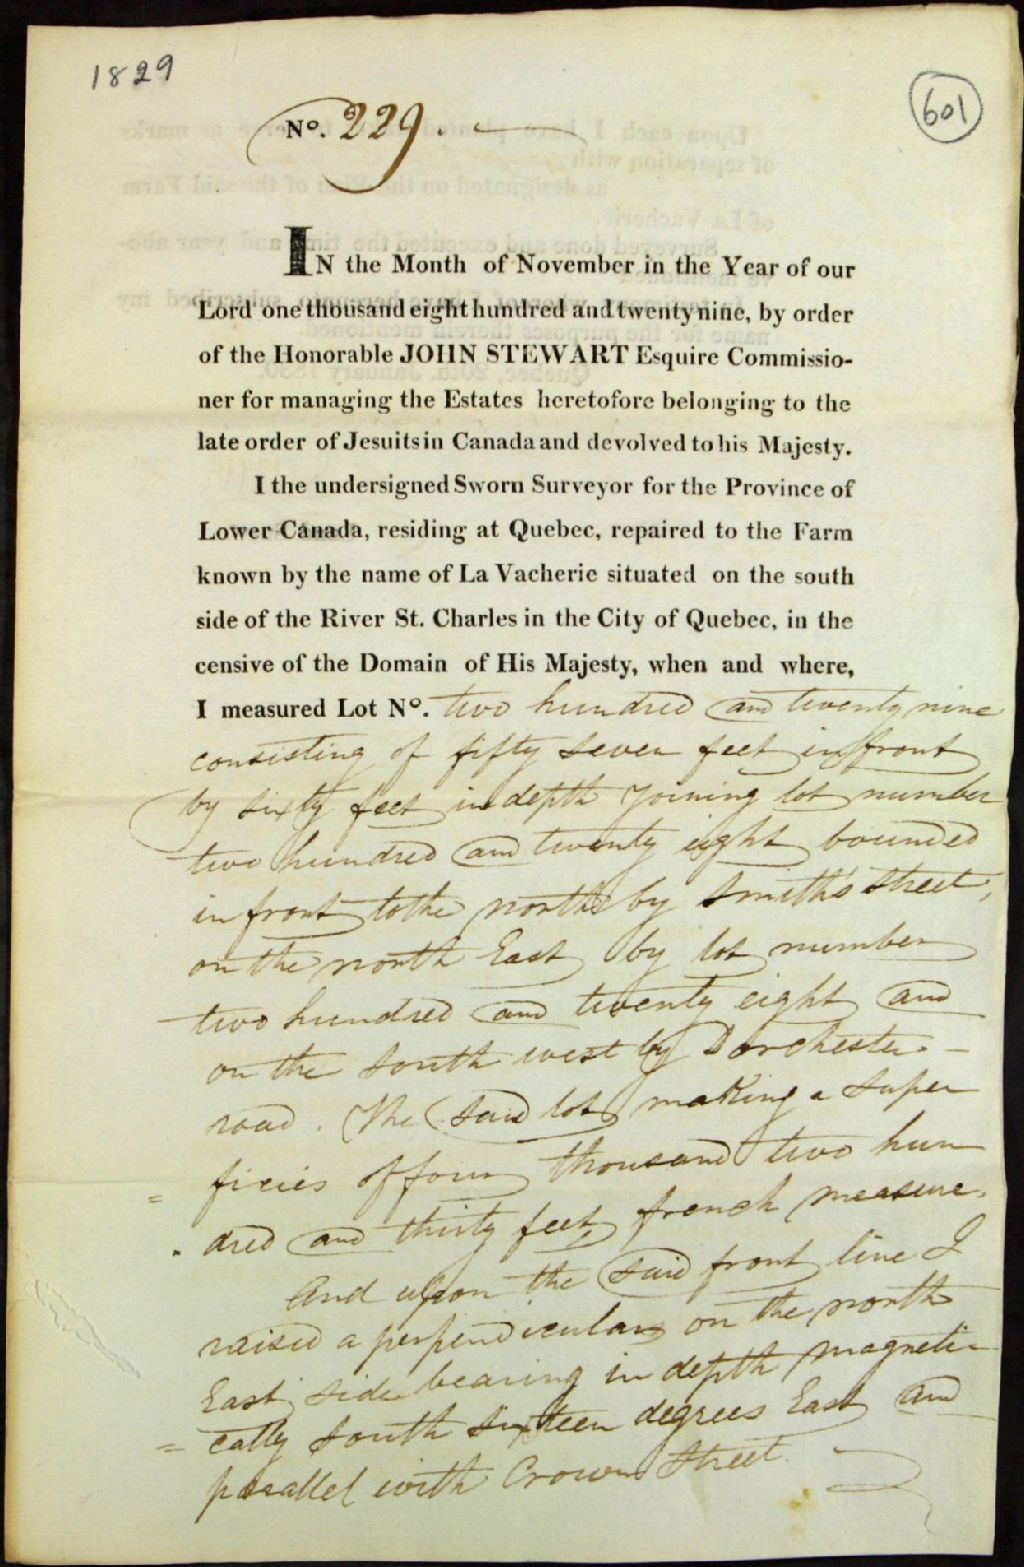 1829
601
No. 229.
IN the Month of November in the Year of our
Lord one thousand eight hundred and twenty nine, by order
of the Honorable JOHN STEWART Esquire Commissio-
ner for managing the Estates heretofore belonging to the
late order of Jesuits in Canada and devolved to his Majesty.
I the undersigned Sworn Surveyor for the Province of
Lower Canada, residing at Quebec, repaired to the Farm
known by the name of La Vacherie situated on the south
side of the River St. Charles in the City of Quebec, in the
censive of the Domain of His Majesty, when and where,
I measured Lot No. two hundred and twenty nine
consisting of fifty seven feet in front
by sixty feet in depth joining lot number
two hundred and twenty eight bounded
in front to the north by Smith's Street,
on the north East by lot number
two hundred and twenty eight and
on the south west by Dorchester -
road. The said lot making a super
= ficies of four thousand two hun
. dred and thirty feet french measure.
And upon the said front line I
raised a perpendicular on the north
East side bearing in depth magneti-
= cally south sixteen degrees East and
parallel with Crown Street.